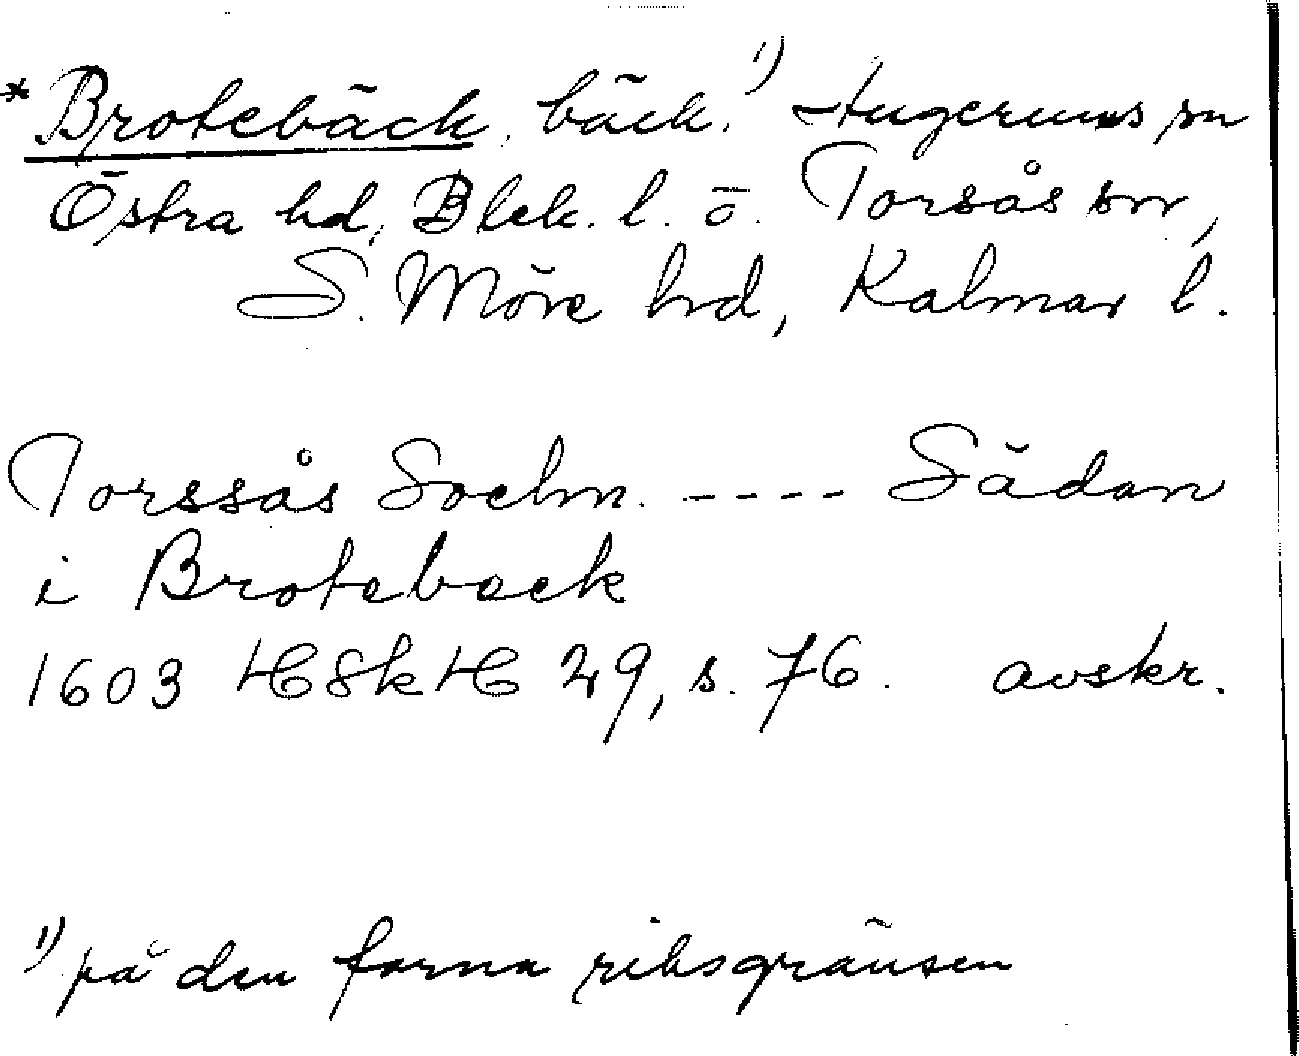 *Brotebäck, bäck.¹⁾ Hugerums sn
Östra hd, Blek. l. o. Torsås sn,
S. Möre hd, Kalmar l.
Torssås Sochn. ---- Sådan
i Broteback
1603 HSkH 29, s. 76. avskr.
¹⁾ på den forna riksgränsen